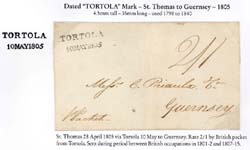 Dated "TORTOLA" Mark – St. Thomas to Guernsey – 1805
4.5mm tall – 35mm long – used 1798 to 1840
TORTOLA
10MAY1805
TORTOLA
10MAY1805
2/1
Messrs C. Priaulx & Co
Guernsey
Packet
St. Thomas 28 April 1805 via Tortola 10 May to Guernsey. Rate 2/1 by British packet
from Tortola. Sent during period between British occupations in 1801-2 and 1807-15.